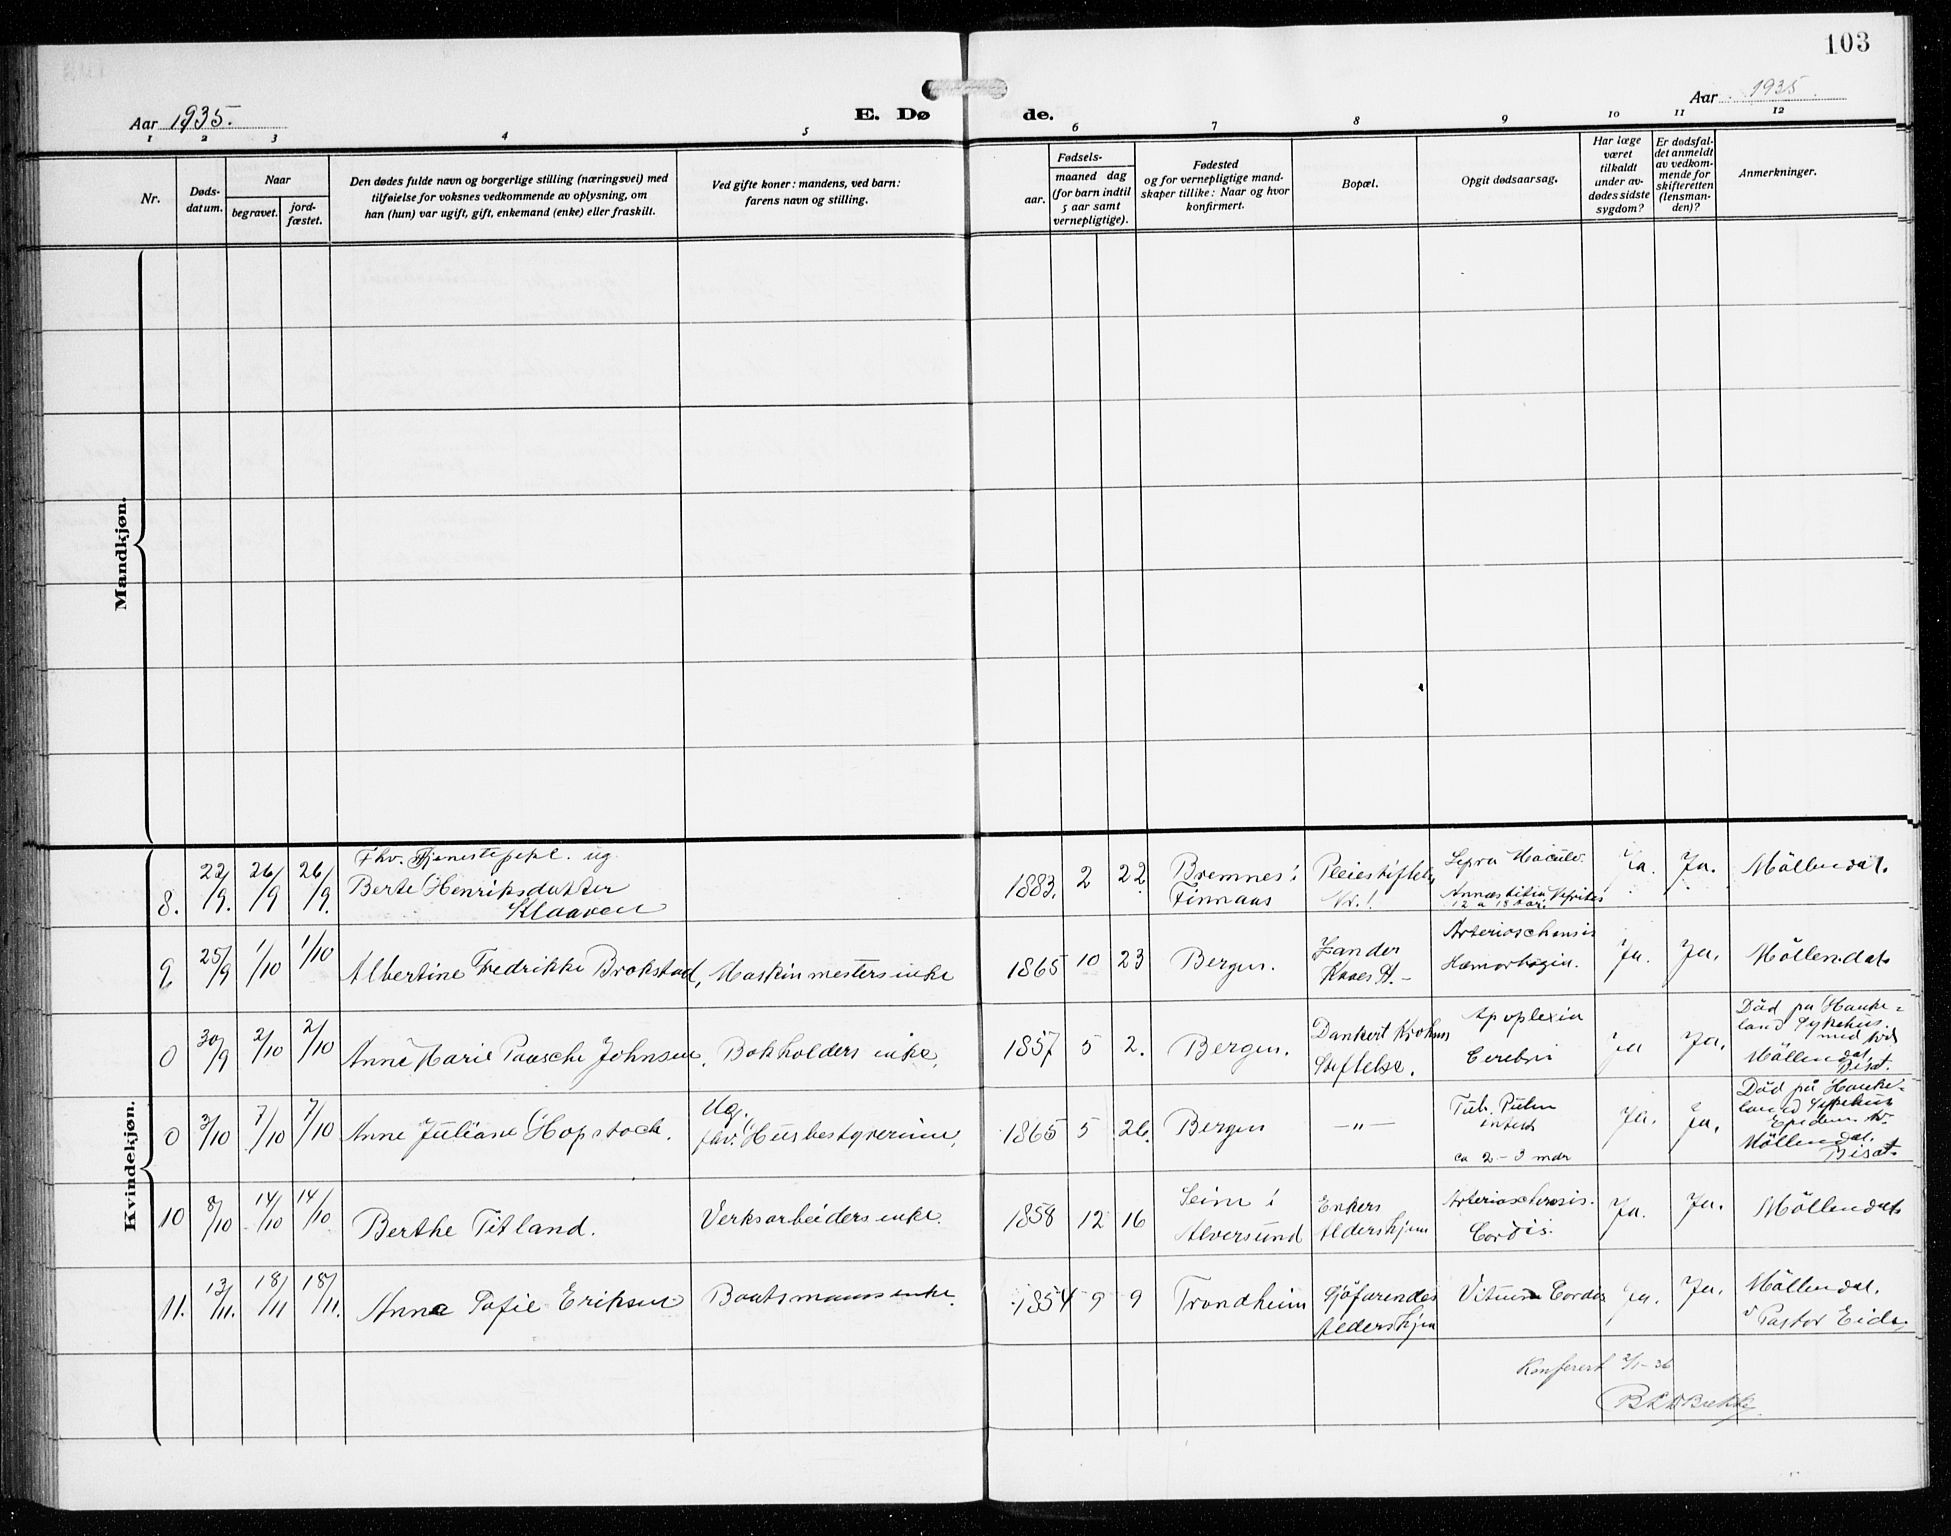 103
Aar 1935.
E. Dø
de.
Aar 1935
1 2 3 4 5 6 7 8 9 10 11 12
Nr.
Døds-
datum.
Naar
begravet.
jord-
fæstet.
Den dødes fulde navn og borgerlige stilling (næringsvei) med
tilføielse for voksnes vedkommende av oplysning, om
han (hun) var ugift, gift, enkemand (enke) eller fraskilt.
Ved gifte koner: mandens, ved barn:
farens navn og stilling.
Fødsels-
aar.
maaned dag
(for barn indtil
5 aar samt
vernepligtige).
Fødested
og for vernepligtige mand-
skaper tillike: Naar og hvor
konfirmert.
Bopæl.
Opgit dødsaarsag.
Har læge
været
tilkaldt
under av-
dødes sidste
sygdom?
Er dødsfal-
det anmeldt
av vedkom-
mende for
skifteretten
(lensman-
den)?
Anmerkninger.
Mandkjøn.
Kvindekjøn.
8. 22/9. 26/9 26/9.
Fhv. Tjenestepike. ug.
Berte Henriksdatter
Klaaven
1883. 2 22
Bremnes i
Finnaas
Pleiestiftelse
Nr. 1
Lepra Maculo
Annæstitica Nefritis
12 a 13 aar.
Ja. Ja. Möllendal.
9 25/9 1/10 1/10
Albertine Fredrikke Brokstad, Maskinmesters enke
1865 10 23 Bergen.
Zander
Kaaes St.-
Arteriosclerosis
Ja. Ja. Möllendal
0 30/9 2/10 2/10
Anne Marie Paasche Johnsen. Bokholders enke.
1857 5 2. Bergen.
Dankert Krohns
Stiftelse.
Apoplexia
Cerebri
Ja Ja.
Död på Hauke-
land Sykehus.
Möllendal
Bisat.
0 3/10 7/10 7/10
Anne Juliane Hopstock.
Ug.
fhv. Husbestyrerinne,
1865 5 26. Bergen —"—
Tub. Pulm
intest
ca 2-3 mdr
Ja. Ja.
Död på Hauke-
land Sykehus
Epidem. av.
Möllendal.
Bisat.
10 8/10 14/10 14/10
Berthe Titland. Verksarbeiders enke.
1858 12 16
Seim i
Alversund
Enkers
Aldershjem
Arteriosclerosis.
Cordis.
Ja. Ja. Möllendal
11. 13/11. 18/11 18/11.
Anna Sofie Eriksen Baatsmanns enke.
1854 9 9 Trondheim
Sjöfarendes
Aldershjem
Vitium Cordis
Ja. Ja.
Möllendal.
v Pastor Eide
Konferert 2/1-36